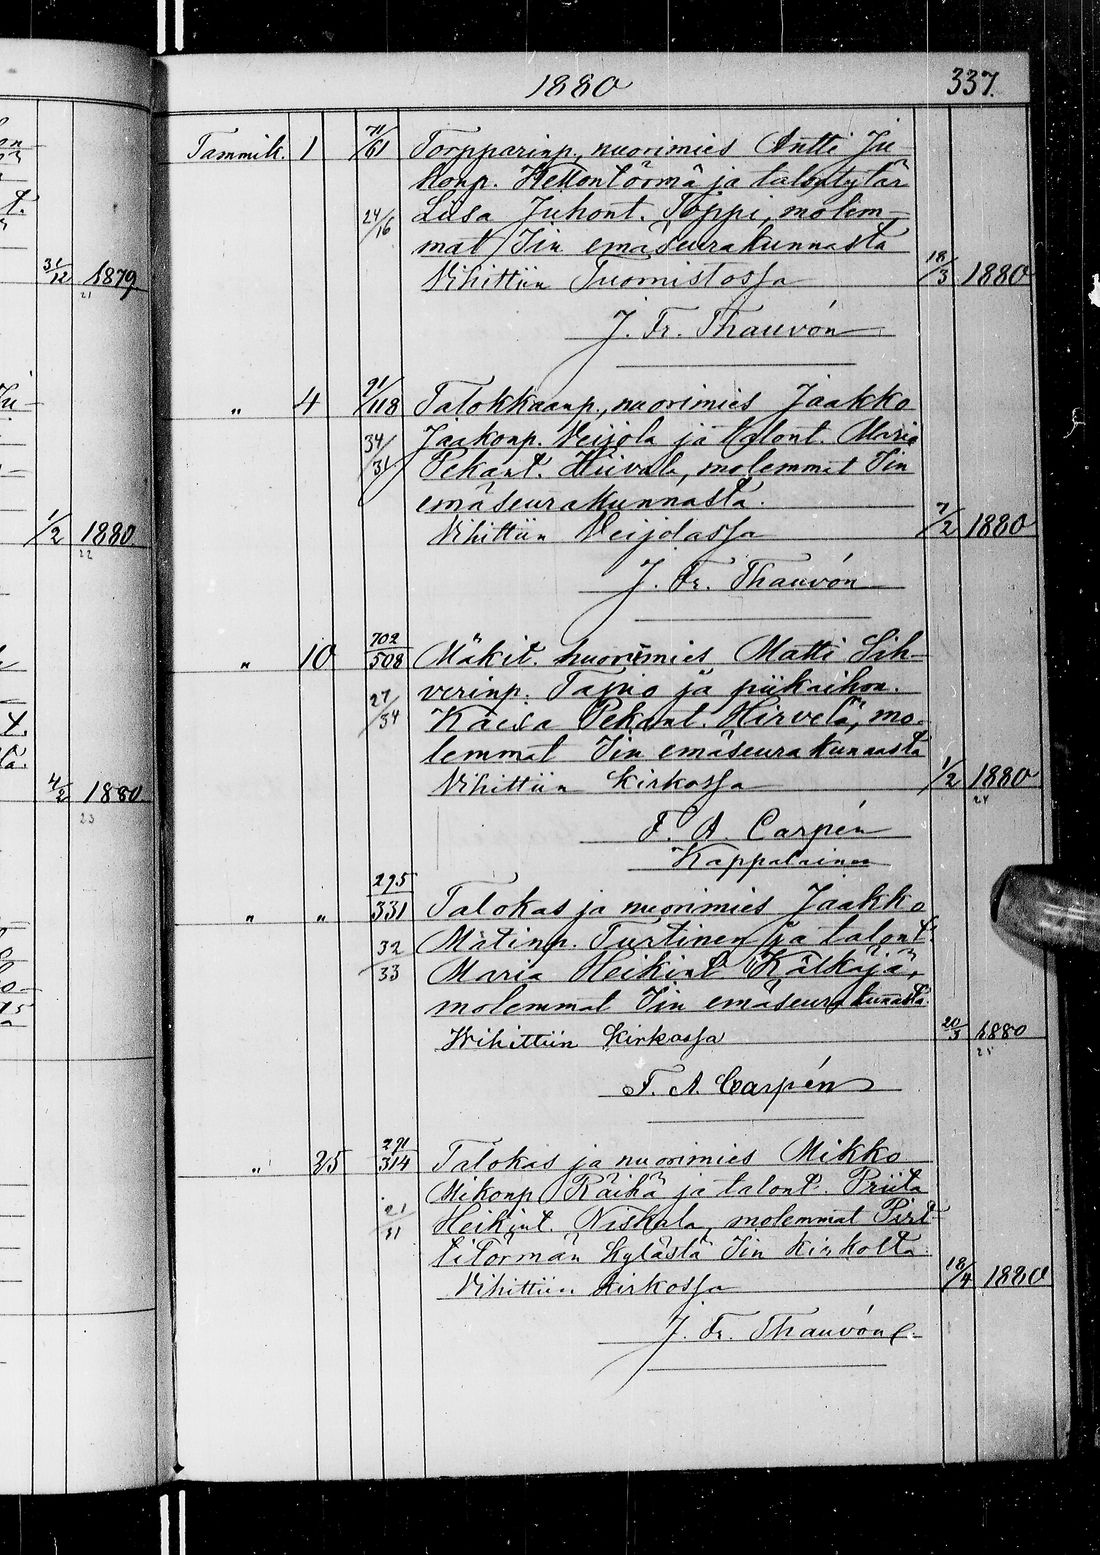 1880 337
Tammik. 1 71/61 Torpparinp., nuorimies Antti Ju-
honp. Kellontörmä ja talontytär
24/16 Liisa Juhont. Toppi, molem-
mat Iin emäseurakunnasta
31/12 1879 Vihittiin Tuomistossa 18/3 1880
21
J. Fr. Thauvón
" 4 91/118 Talokkaanp., nuorimies Jaakko
34/31 Jaakonp. Veijola ja talont. Maria
Pekant. Hiivala, molemmat Iin
emäseurakunnasta.
1/2 1880 Vihittiin Veijolassa 7/2 1880
22
J. Fr. Thauvón
" 10 702/508 Mäkit. nuorimies Matti Sih-
verinp. Tapio ja piikaihm.
27/34 Kaisa Pekant. Hirvelä, mo-
lemmat Iin emäseurakunnasta
4/2 1880 Vihittiin kirkossa 1/2 1880
23 24
F. A. Carpén
Kappalainen
" " 295/331 Talokas ja nuorimies Jaakko
32/33 Matinp. Turtinen ja talont.
Maria Heikint. Kälkäjä,
molemmat Iin emäseurakunnasta.
Wihittiin kirkossa 20/3 1880
25
F. A. Carpén
" 25 291/314 Talokas ja nuorimies Mikko
Mikonp. Räihä ja talont. Priita
21/31 Heikint. Niskala, molemmat Pirt-
titörmän kylästä Iin kirkolta.
Vihittiin kirkossa 18/4 1880
J. Fr. Thauvón